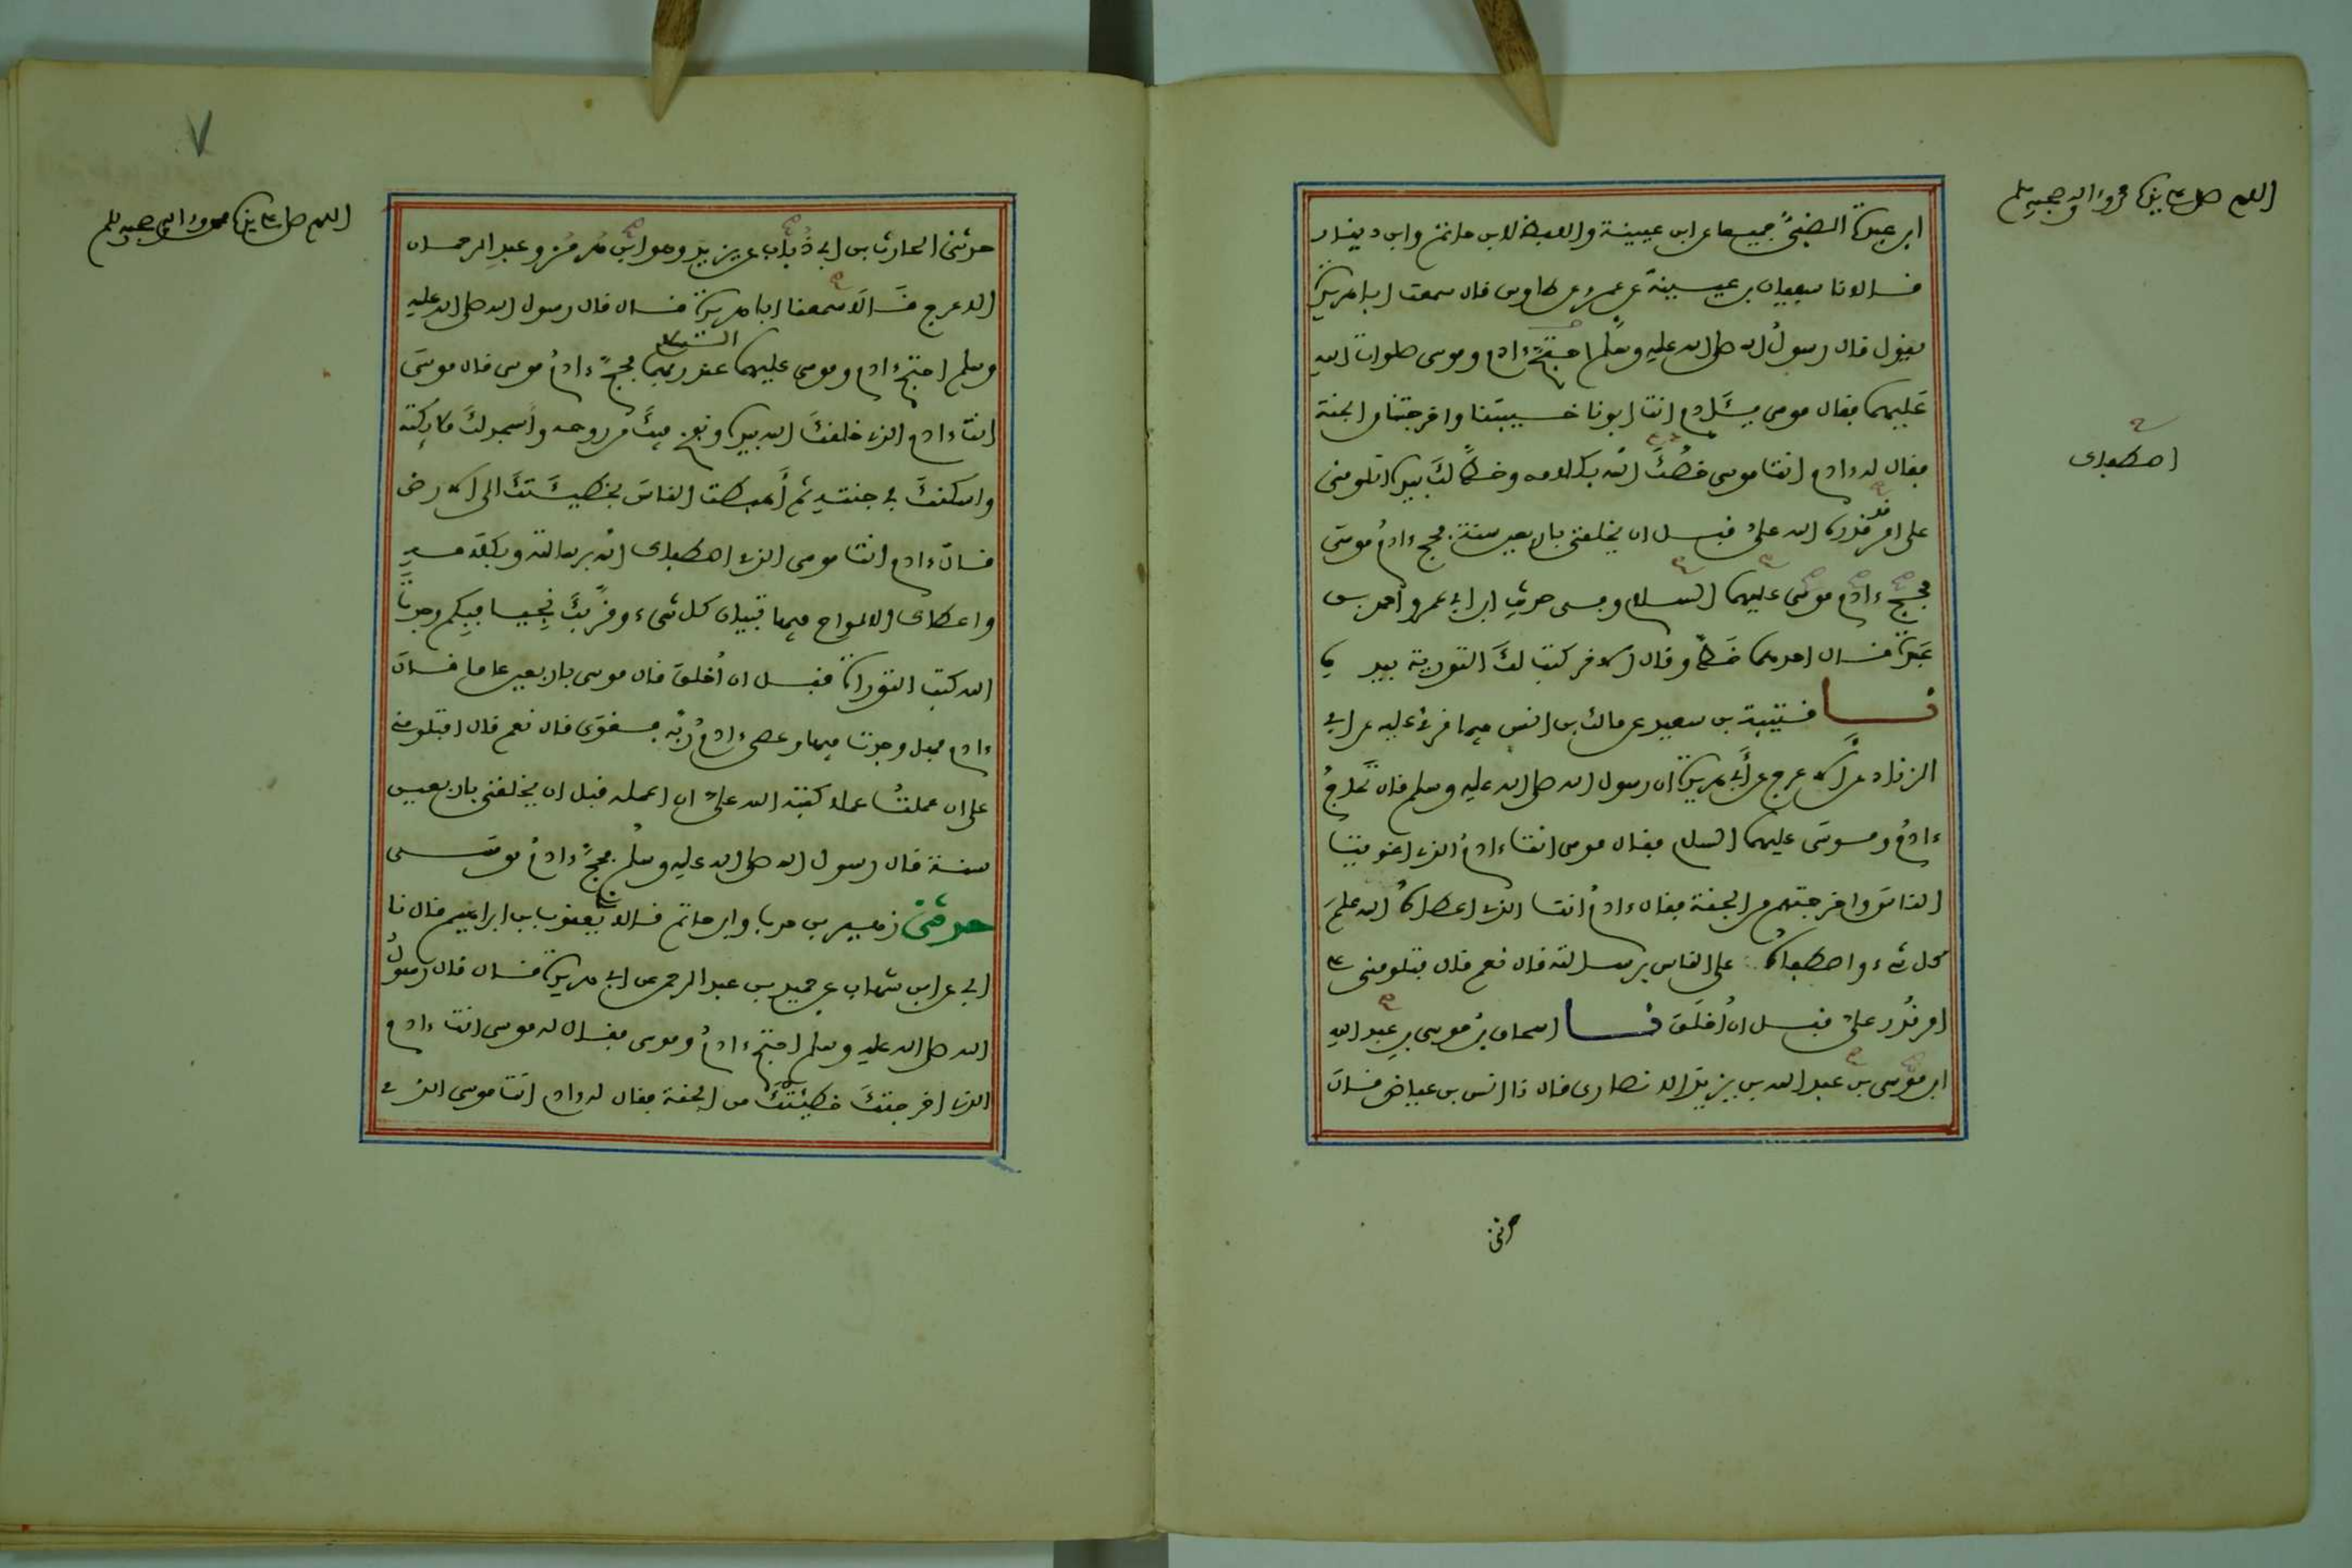 اللهم صل على سيدنا محمد وءاله وصحبه وسلم
ابن عبدة الضبي جميعا عن ابن عيينة واللفظ لابن حاتم وابن دينار
قالا نا سفيان بن عيينة عن عمرو عن طاوس قال سمعت ابا هريرة
يقول قال رسول الله صلى الله عليه وسلم احتج ءادم وموسى صلوات الله
عليهما فقال موسى يئادم انت ابونا خيبتنا واخرجتنا من الجنة
فقال له ءادم انت موسى اصطفاك الله بكلامه وخط لك بيده اتلومني
اصطفاك
على امر قدره الله علي قبل ان يخلقني باربعين سنة فحج ءادم موسى
فحج ءادم موسى عليهما السلام وفي حديث ابن ابي عمر واحمد بن
عبدة قال احدهما خط وقال الاخر كتب لك التورية بيده
نا قتيبة بن سعيد عن مالك بن انس فيما قرئ عليه عن ابي
الزناد عن الاعرج عن أبي هريرة ان رسول الله صلى الله عليه وسلم قال تحاج
ءادم وموسى عليهما السلام فقال موسى انت ءادم الذي اغويت
الناس واخرجتهم من الجنة فقال ءادم انت الذي اعطاه الله علم
كل شيء واصطفاه على الناس برسالته قال نعم قال فتلومني على
امر قدر علي قبل ان أخلق نا اسحاق بن موسى بن عبد الله
ابن موسى بن عبد الله بن يزيد الانصاري قال نا انس بن عياض قال
حدثني
٧
اللهم صل على سيدنا محمد وءاله وصحبه وسلم
حدثني الحارث بن ابي ذباب عن يزيد وهو ابن هرمز وعبد الرحمان
الاعرج قالا سمعنا ابا هريرة قال قال رسول الله صلى الله عليه
وسلم احتج ءادم وموسى عليهما السلام عند ربهما فحج ءادم موسى قال موسى
انت ءادم الذي خلقك الله بيده ونفخ فيك من روحه وأسجد لك ملائكته
واسكنك في جنته ثم أهبطت الناس بخطيئتك الى الارض
قال ءادم انت موسى الذي اصطفاك الله برسالته وبكلامه
واعطاك الالواح فيها تبيان كل شيء وقربك نجيا فبكم وجدت
الله كتب التوراة قبل ان أخلق قال موسى باربعين عاما قال
ءادم فهل وجدت فيها وعصى ءادم ربه فغوى قال نعم قال افتلومني
على ان عملت عملا كتبه الله علي ان اعمله قبل ان يخلقني باربعين
سنة قال رسول الله صلى الله عليه وسلم فحج ءادم موسى
حدثني زهير بن حرب وابن حاتم قالا نا يعقوب بن ابراهيم قال نا
ابي عن ابن شهاب عن حميد بن عبد الرحمن عن ابي هريرة قال قال رسول
الله صلى الله عليه وسلم احتج ءادم وموسى فقال له موسى انت ءادم
الذي اخرجتك خطيئتك من الجنة فقال له ءادم انت موسى الذي